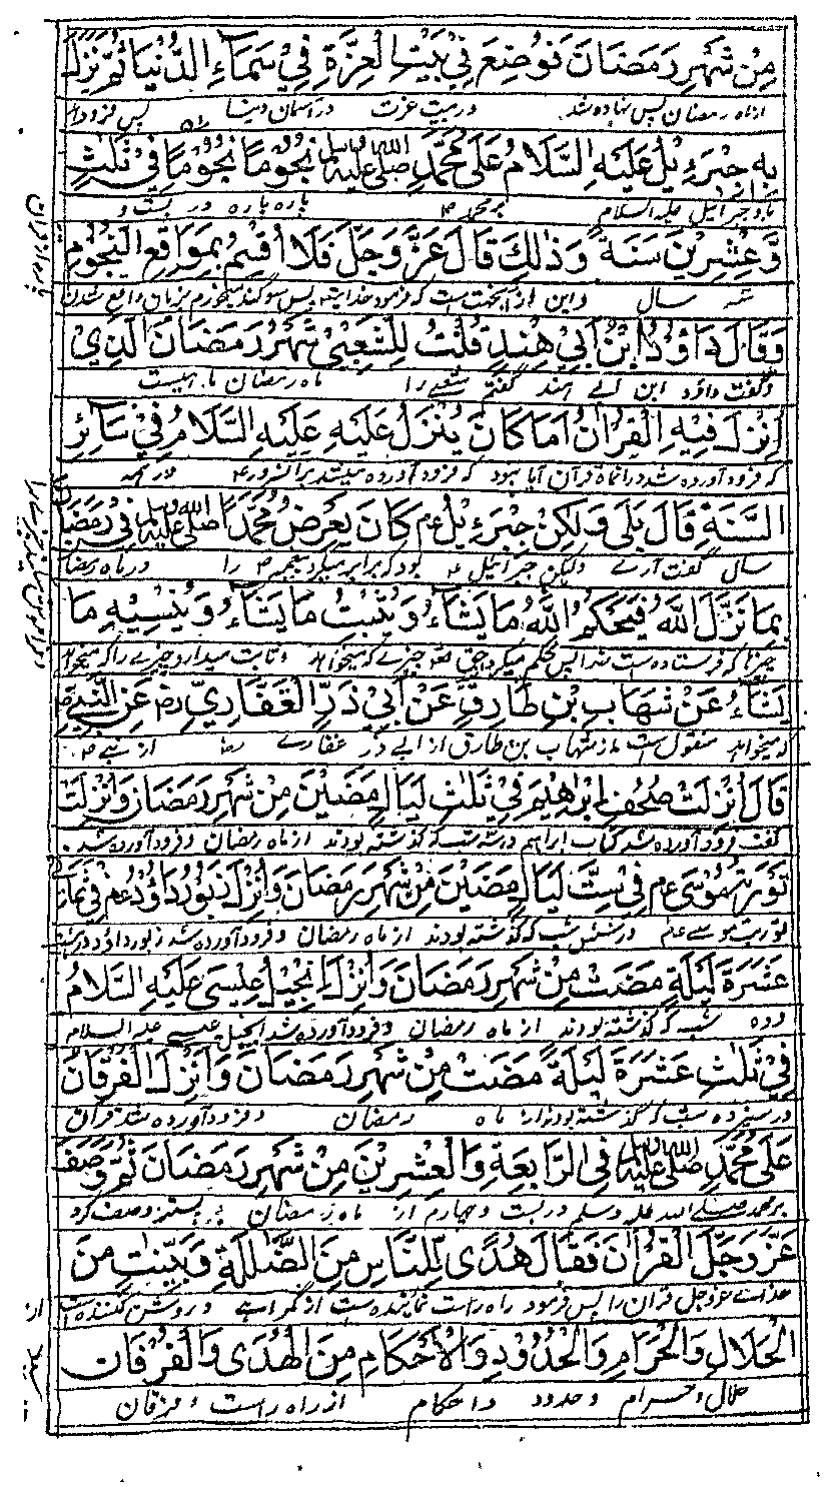 مِنْ شَهْرِ رَمَضَانَ فَوُضِعَ فِيْ بَيْتِ الْعِزَّةِ فِيْ سَمَآءِ الدُّنْيَا ثُمَّ نَزَلَ
ازماه رمضان پس نهاده شد در بیت عزت در آسمان دنیا پس فرود
بِهٖ جِبْرَءِيْلُ عَلَيْهِ السَّلَامُ عَلٰى مُحَمَّدٍ صلى الله عليه وسلم نُجُوْمًا نُجُوْمًا فِيْ ثَلٰثٍ
جبرائیل علیه السلام بر محمد ص پاره پاره در بست و
وَّعِشْرِيْنَ سَنَةً وَذٰلِكَ قَالَ عَزَّ وَجَلَّ فَلَا اُقْسِمُ بِمَوَاقِعِ النُّجُوْمِ
سه سال واین است که فرمود خدایتعالی پس سوگند میخورم بزمان واقع شدن
وَقَالَ دَاوٗدُ ابْنُ اَبِيْ هِنْدٍ قُلْتُ لِلشَّعْبِيْ شَهْرُ رَمَضَانَ الَّذِيْ
وگفت داؤد ابن ابی هند گفتم شعبی را ماه رمضان
اُنْزِلَ فِيْهِ الْقُرْاٰنُ اَمَا كَانَ يُنَزَلُ عَلَيْهِ عَلَيْهِ السَّلَامُ فِيْ سَآئِرِ
که فرود آورده شد درانماه قرآن آیا نبود که فرود آورده میشد بر آنسرور ع در همه
السَّنَةِ قَالَ بَلٰى وَلٰكِنْ جِبْرَءِيْلُ عم كَانَ يَعْرِضُ مُحَمَّدًا صلى الله عليه وسلم فِيْ رَمَضَانَ
سال گفت آرے ولیکن جبرائیل ع بود که برابر میکرد پیغمبر ص را درماه رمضان
بِمَا نَزَّلَ اللّٰهُ فَيُحْكِمُ اللّٰهُ مَا يَشَآءُ وَيُثْبِتُ مَا يَشَآءُ وَيُنْسِيْهِ مَا
که فرستاده است خدا پس محکم میکرد حق تعالی چیزے که میخواهد وثابت میدارد چیزے را که میخواهد
يَشَآءُ عَنْ شَهَابِ بْنِ طَارِقٍ عَنْ اَبِيْ ذَرِّ الْغَفَارِيِّ رض عَنِ النَّبِيِّ ص
که میخواهد منقول است از شهاب بن طارق از ابی ذر غفاری رض از نبی ص
قَالَ اُنْزِلَتْ صُحُفُ اِبْرٰهِيْمَ فِيْ ثَلٰثِ لَيَالٍ مَضَيْنَ مِنْ شَهْرِ رَمَضَانَ وَاُنْزِلَتْ
گفت فرود آورده شد کتاب ابراهیم در سه شب که گذشته بودند از ماه رمضان وفرود آورده شد
تَوْرٰىةُ مُوْسٰى عم فِيْ سِتِّ لَيَالٍ مَضَيْنَ مِنْ شَهْرِ رَمَضَانَ وَاُنْزِلَ زَبُوْرُ دَاوٗدَ عم فِيْ ثَمَانِ
توریت موسی عم در شش شب که گذشته بودند از ماه رمضان وفرود آورده شد زبور داؤد در
عَشَرَةَ لَيْلَةٍ مَضَتْ مِنْ شَهْرِ رَمَضَانَ وَاُنْزِلَ اِنْجِيْلُ عِيْسٰى عَلَيْهِ السَّلَامُ
وده شب که گذشته بودند از ماه رمضان وفرود آورده شد انجیل عیسی علیه السلام
فِيْ ثَلٰثِ عَشَرَةَ لَيْلَةً مَضَتْ مِنْ شَهْرِ رَمَضَانَ وَاُنْزِلَ الْفُرْقَانُ
در سیزده شب که گذشته بودند از ماه رمضان وفرود آورده شد فرقان
عَلٰى مُحَمَّدٍ صلى الله عليه وسلم فِي الرَّابِعَةِ وَالْعِشْرِيْنَ مِنْ شَهْرِ رَمَضَانَ ثُمَّ وَصَفَ
بر محمد صلی الله علیه وسلم در بست وچهارم از ماه رمضان پستر وصف کرد
عَزَّ وَجَلَّ الْقُرْاٰنَ فَقَالَ هُدًى لِّلنَّاسِ مِنَ الضَّلٰلَةِ وَبَيِّنٰتٍ مِنَ
خدای عزوجل قرآن را پس فرمود راه راست نماینده است از گمراهی وروشن کننده است
الْحَلَالِ وَالْحَرَامِ وَالْحُدُوْدِ وَالْاَحْكَامِ مِنَ الْهُدٰى وَالْفُرْقَانِ
حلال وحرام وحدود واحکام از راه راست وفرقان